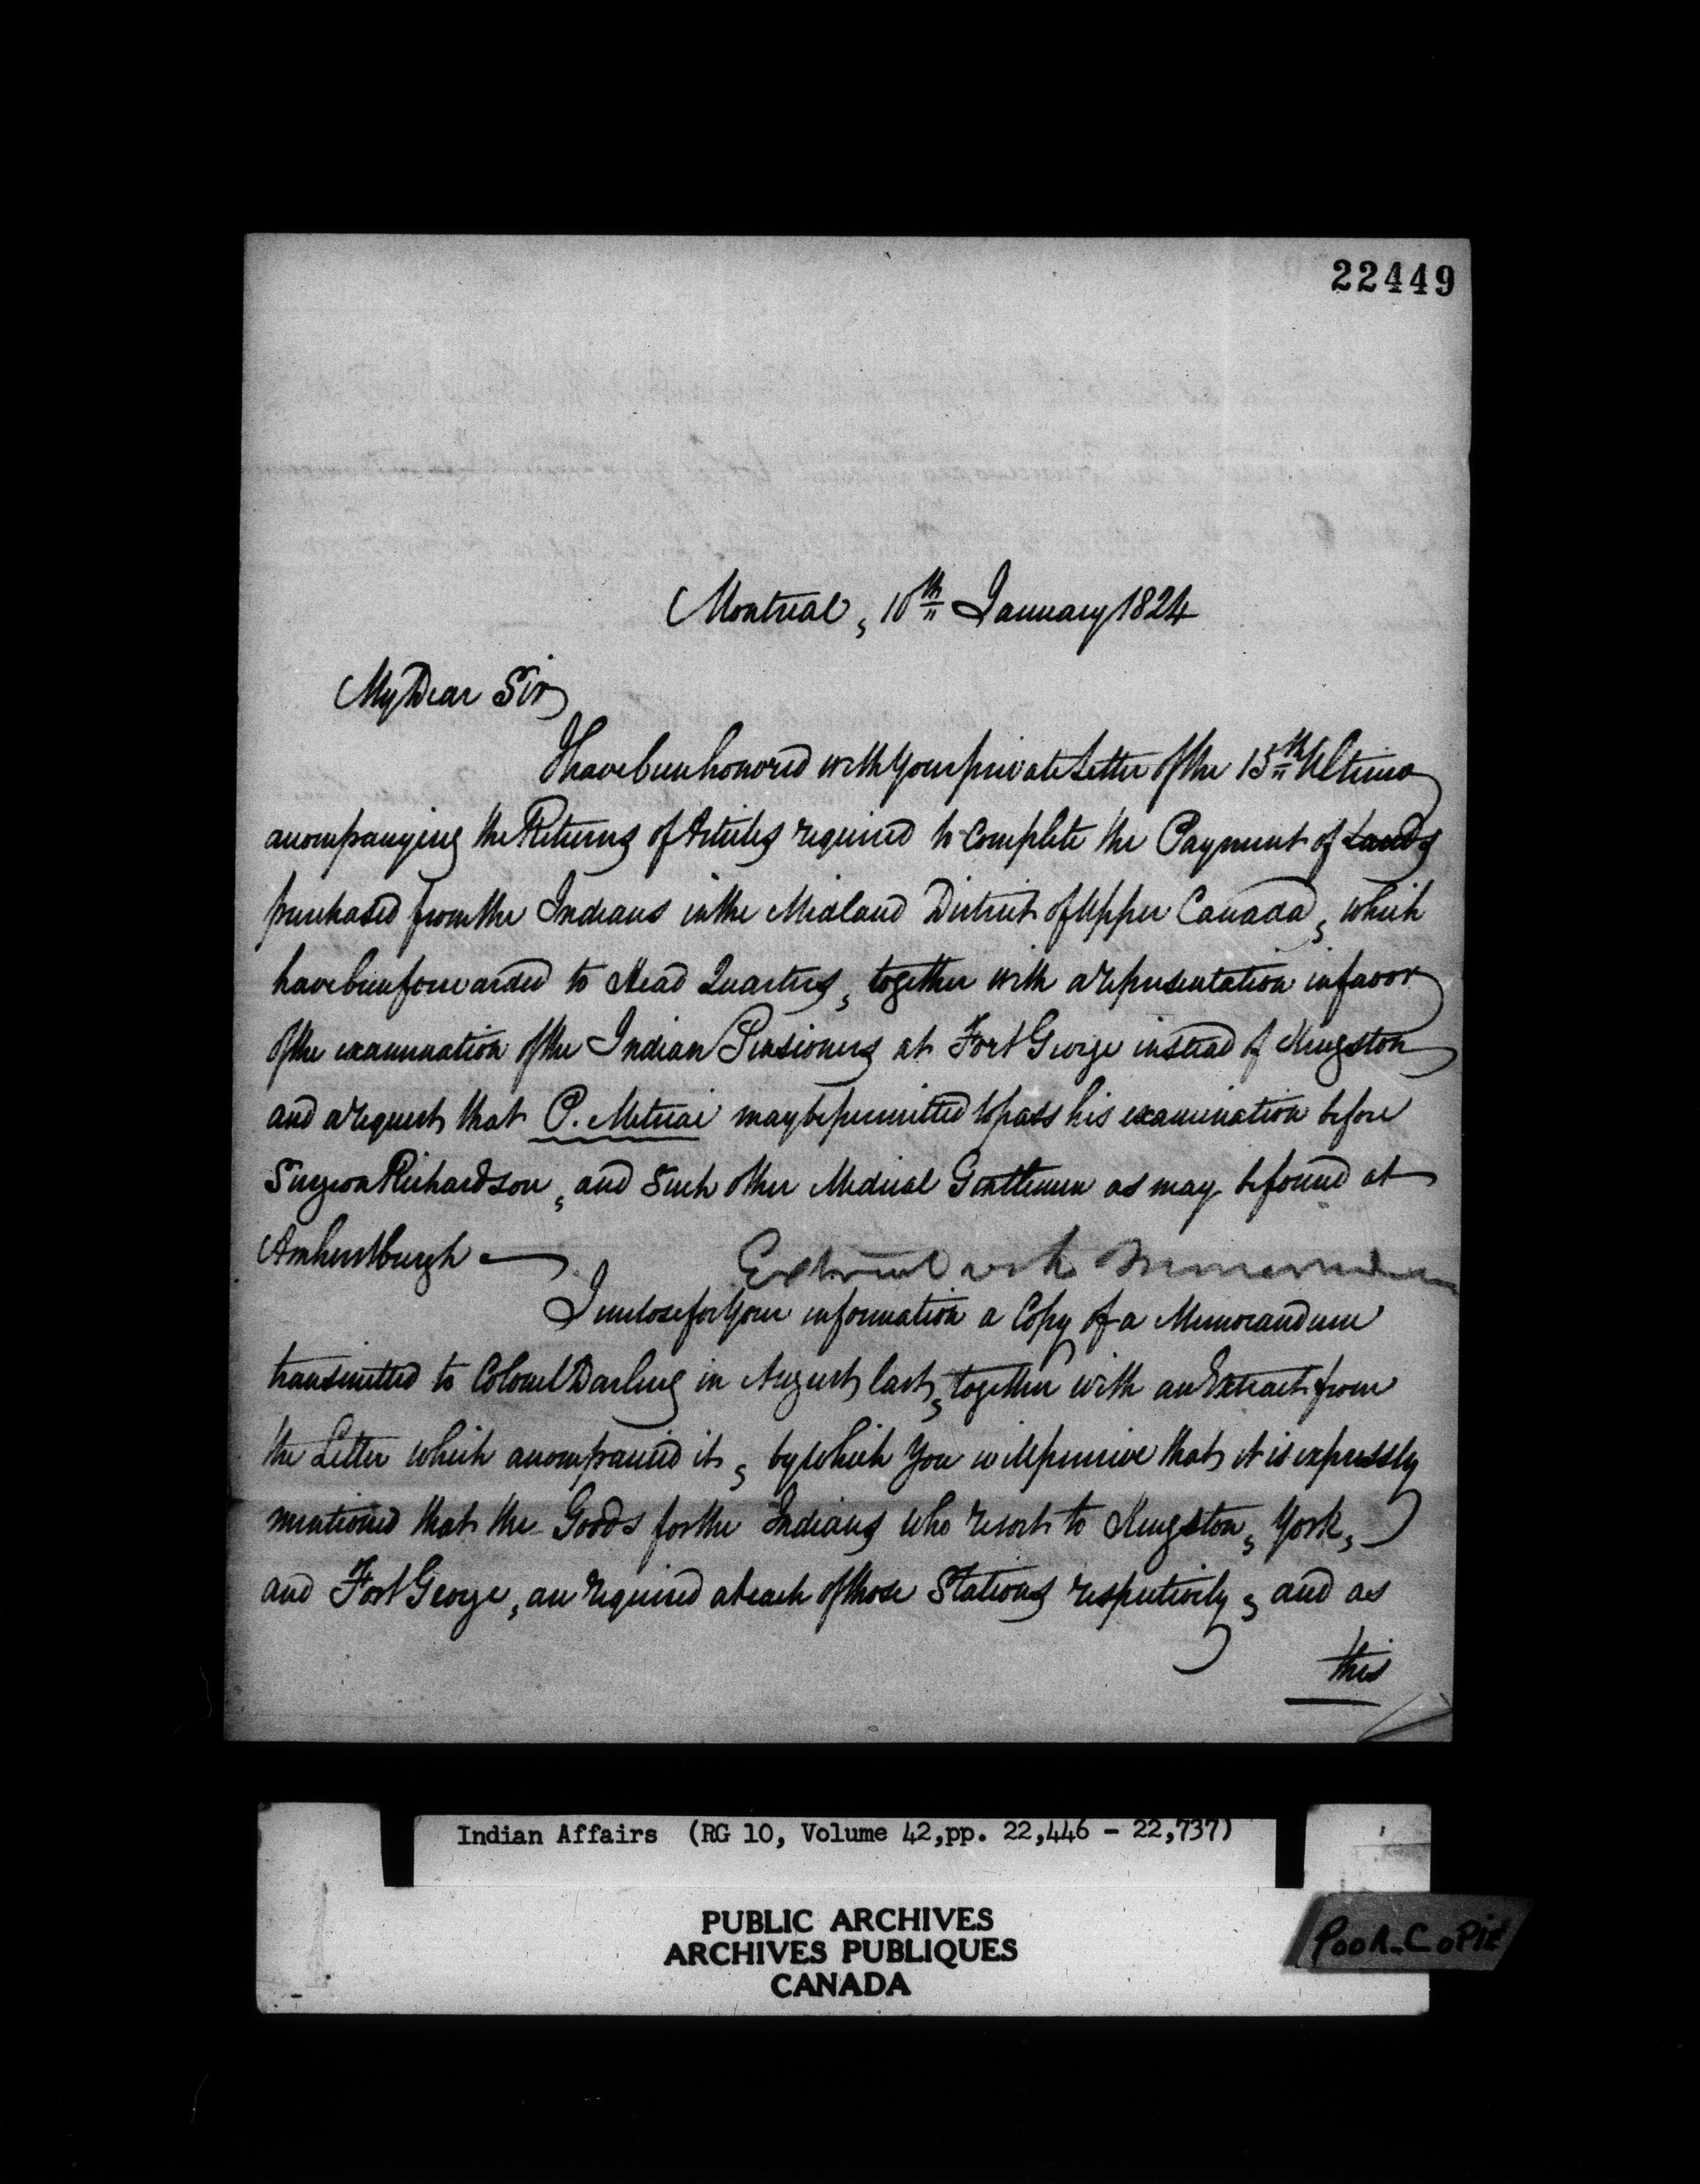 22449
Montreal, 10th January 1824
My Dear Sir
I have been honored with Your private Letter of the 15th Ultimo
accompanying the Returns of Articles required to complete the Payment of Lands
purchased from the Indians in the Midland District of Upper Canada, which
have been forwarded to Head Quarters, together with a representation in favor
of the examination of the Indian Pensioners at Fort George instead of Kingston
and a request that P. may be permitted to pass his examination before
Surgeon Richardson, and Such other Medical Gentlemen as may be found at
Amherstburgh
I inclose for Your information a Copy of a Memorandum
transmitted to Colonel Darling in August last, together with an Extract from
the Letter which accompanied it, by which You will perceive that it is expressly
mentioned that the Goods for the Indians who resort to Kingston, York,
and Fort George, are required at each of those Stations respectively, and as
this
Indian Affairs (RG 10, Volume 42,pp. 22,446 - 22,737)
PUBLIC ARCHIVES
ARCHIVES PUBLIQUES
CANADA
POOR COPIE